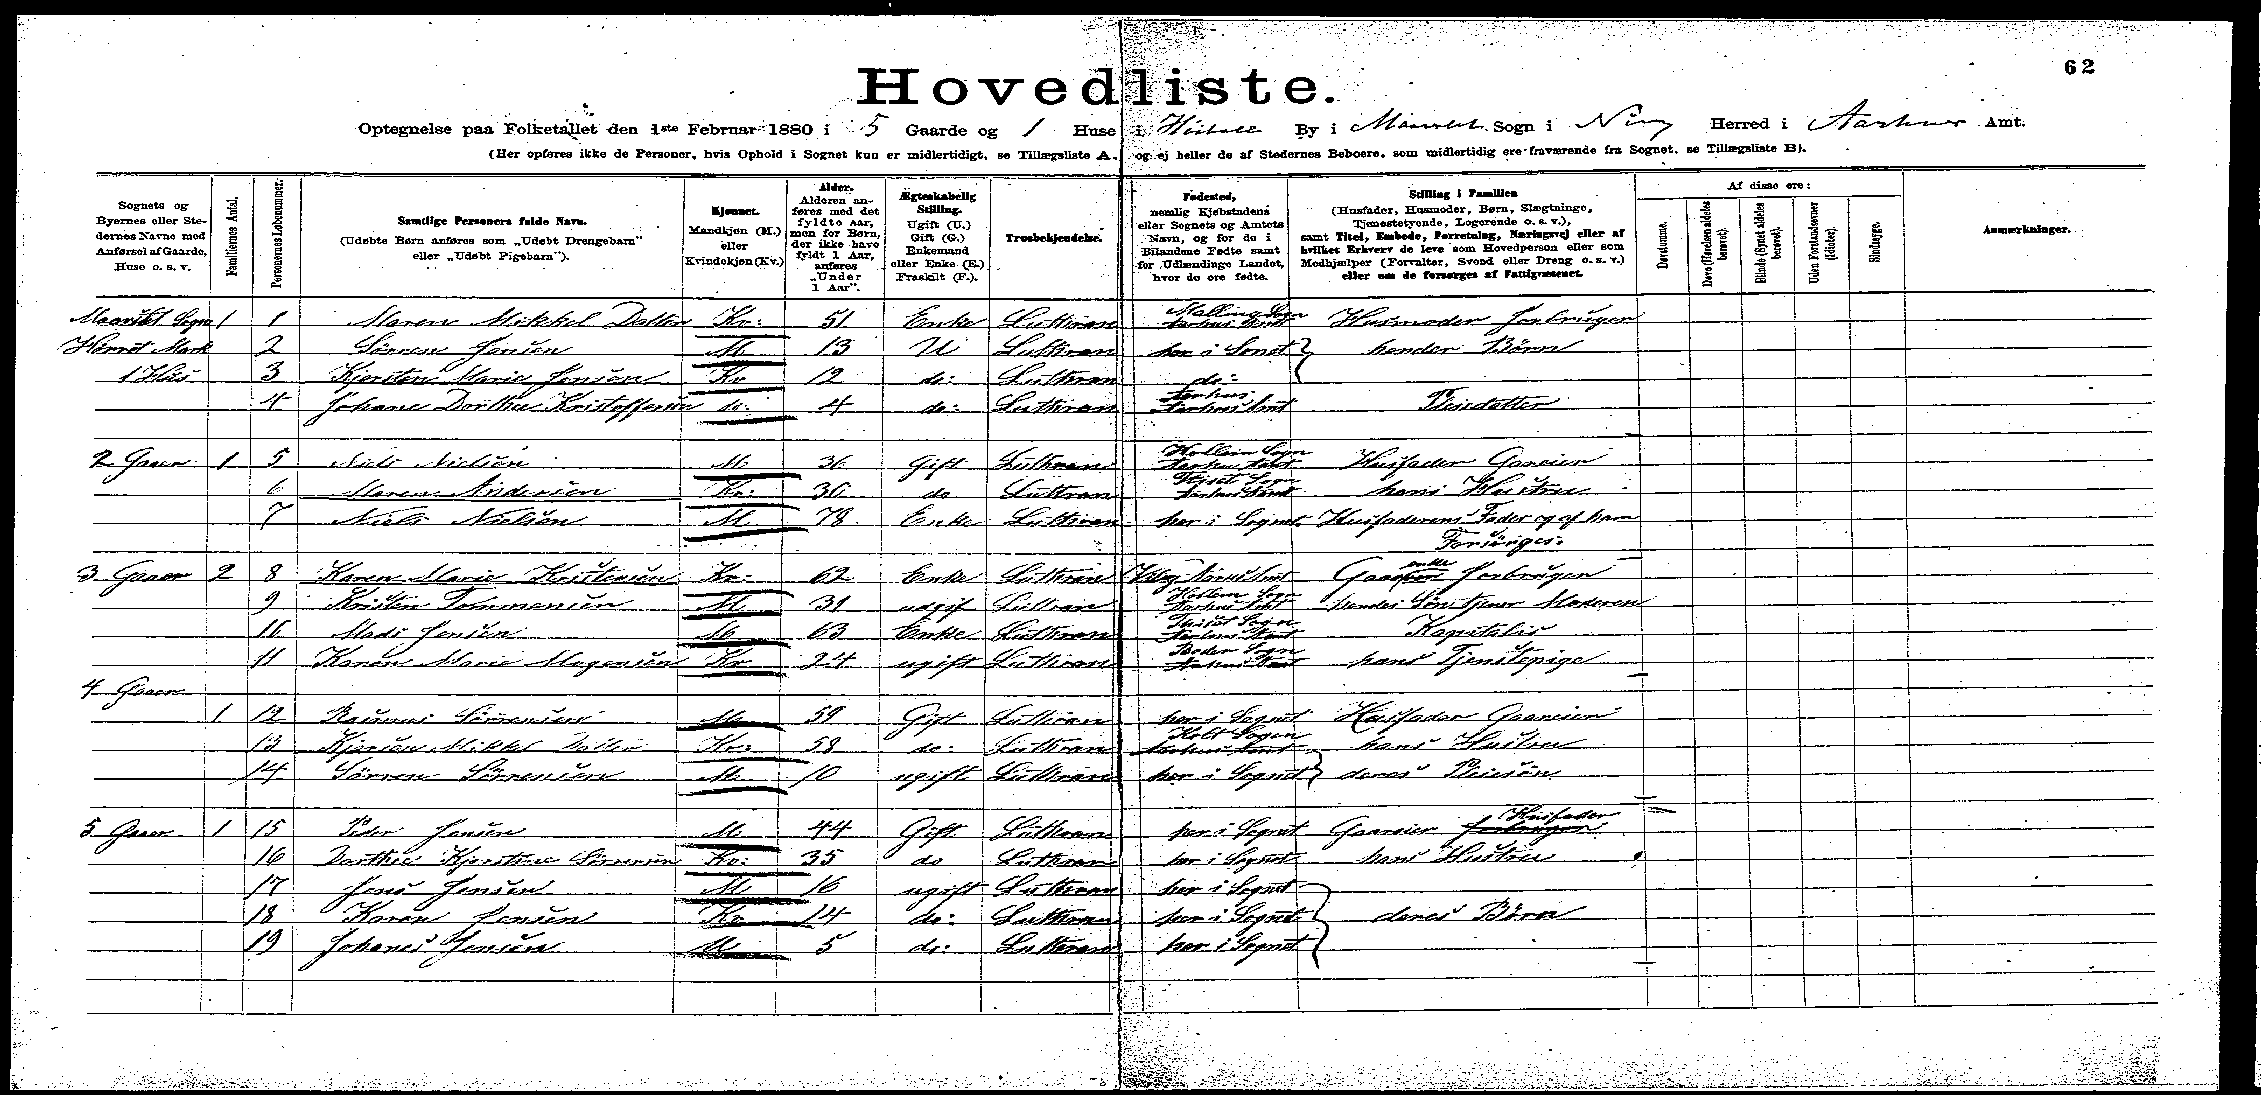 62
Hovedliste.
Optegnelse paa Folketallet den 1ste Februar 1880 i 5 Gaarde og 1 Huse i By i Maarslet Sogn i Ning Herred i Aarhuus Amt.
(Her opføres ikke de Personer, hvis Ophold i Sognet kun er midlertidigt, se Tillægsliste A. og ej heller de af Stedernes Beboere, som midlertidig ere fraværende fra Sognet, se Tillægsliste B).
Sognets og Byernes eller Stedernes Navne med Anførsel af Gaarde, Huse o. s. v.
Familiernes Antal.
Personernes Løbenummer.
Samtlige Personers fulde Navn.
(Udøbte Børn anføres som „Udøbt Drengebarn" eller „Udøbt Pigebarn").
Kjønnet.
Mandkjøn (M.) eller Kvindekjøn (Kv.)
Alder.
Alderen anføres med det fyldte Aar, men for Børn, der ikke have fyldt 1 Aar, anføres „Under 1 Aar".
Ægteskabelig Stilling.
Ugift (U.) Gift (G.) Enkemand eller Enke (E.) Fraskilt (F.).
Trosbekjendelse.
Fødested,
nemlig Kjøbstadens eller Sognets og Amtets Navn, og for de i Bilandene Fødte samt for Udlændinge Landet, hvor de ere fødte.
Stilling i Familien
(Husfader, Husmoder, Børn, Slægtninge, Tjenestetyende, Logerende o. s. v.),
samt Titel, Embede, Forretning, Næringsvej eller af hvilket Erhverv de leve som Hovedperson eller som Medhjælper (Forvalter, Svend eller Dreng o. s. v.) eller om de forsørges af Fattigvæsenet.
Af disse ere:
Døvstumme.
Døve (Hørelsen aldeles berøvet).
Blinde (Synet aldeles berøvet).
Uden Forstandsevner (Idioter).
Sindssyge.
Anmærkninger.
Maarslet Sogn 1 1 Maren Mikkel Datter Kv: 51 Enke Luthran Malling Sogn Aarhus Amt Husmoder Jordbruger
Hørret Mark 2 Sörren Jensen M 13 U Luthran her i Sonet hendes Börn
1 Hus 3 Kjersten Marie Jensen Kv 12 do: Luthran do:
4 Johane Dorthea Kristoffersen do: 4 do: Luthran Aarhus Aarhus Amt Pleiedatter
2 Gaar 1 5 Niels Nielsen M 36 Gift Luthran Sogn Aarhus Amt Husfader Gaareier
6 Maren Andersen Kv: 36 do Luthran Sogn Aarhus Amt hans Hustru
7 Niels Nielsen M 78 Enke Luthran her i Sognet Husfaderens Fader og af ham
Forsörges.
3 Gaar 2 8 Karen Marie Kristensen Kv: 62 Enke Luthran Amt Gaareier enke Jordbruger
9 Kristen Rasmussen M 31 ugift Luthran Sogn Aarhus Amt hendes Sön tjener Moderen
10 Mads Jensen M 63 Enke Luthran Sogn Aarhus Amt Kapitalist
11 Karen Marie Mogensen Kv 24 ugift Luthran Beder Sogn Aarhus Amt hans Tjenstepige
4 Gaar
1 12 Rasmus Sörrensen M 59 Gift Luthran her i Sognet Husfader Gaareier
13 Kjersten Mikkel Datter Kv: 58 do: Luthran Kolt Sogen Aarhus Amt hans Hustru
14 Sörren Sörrensen M 10 ugift Luthran her i Sognet deres Pleiesön
5 Gaar 1 15 Peder Jensen M 44 Gift Luthran her i Sognet Gaareier Husfader
16 Dorthe Kjerstine Sörrensen Kv: 35 do Luthran her i Sognet hans Hustru
17 Jens Jensen M 16 ugift Luthran her i Sognet
18 Karen Jensen Kv 14 do: Luthran her i Sognet deres Börn
19 Johanes Jensen M 5 do: Luthran her i Sognet